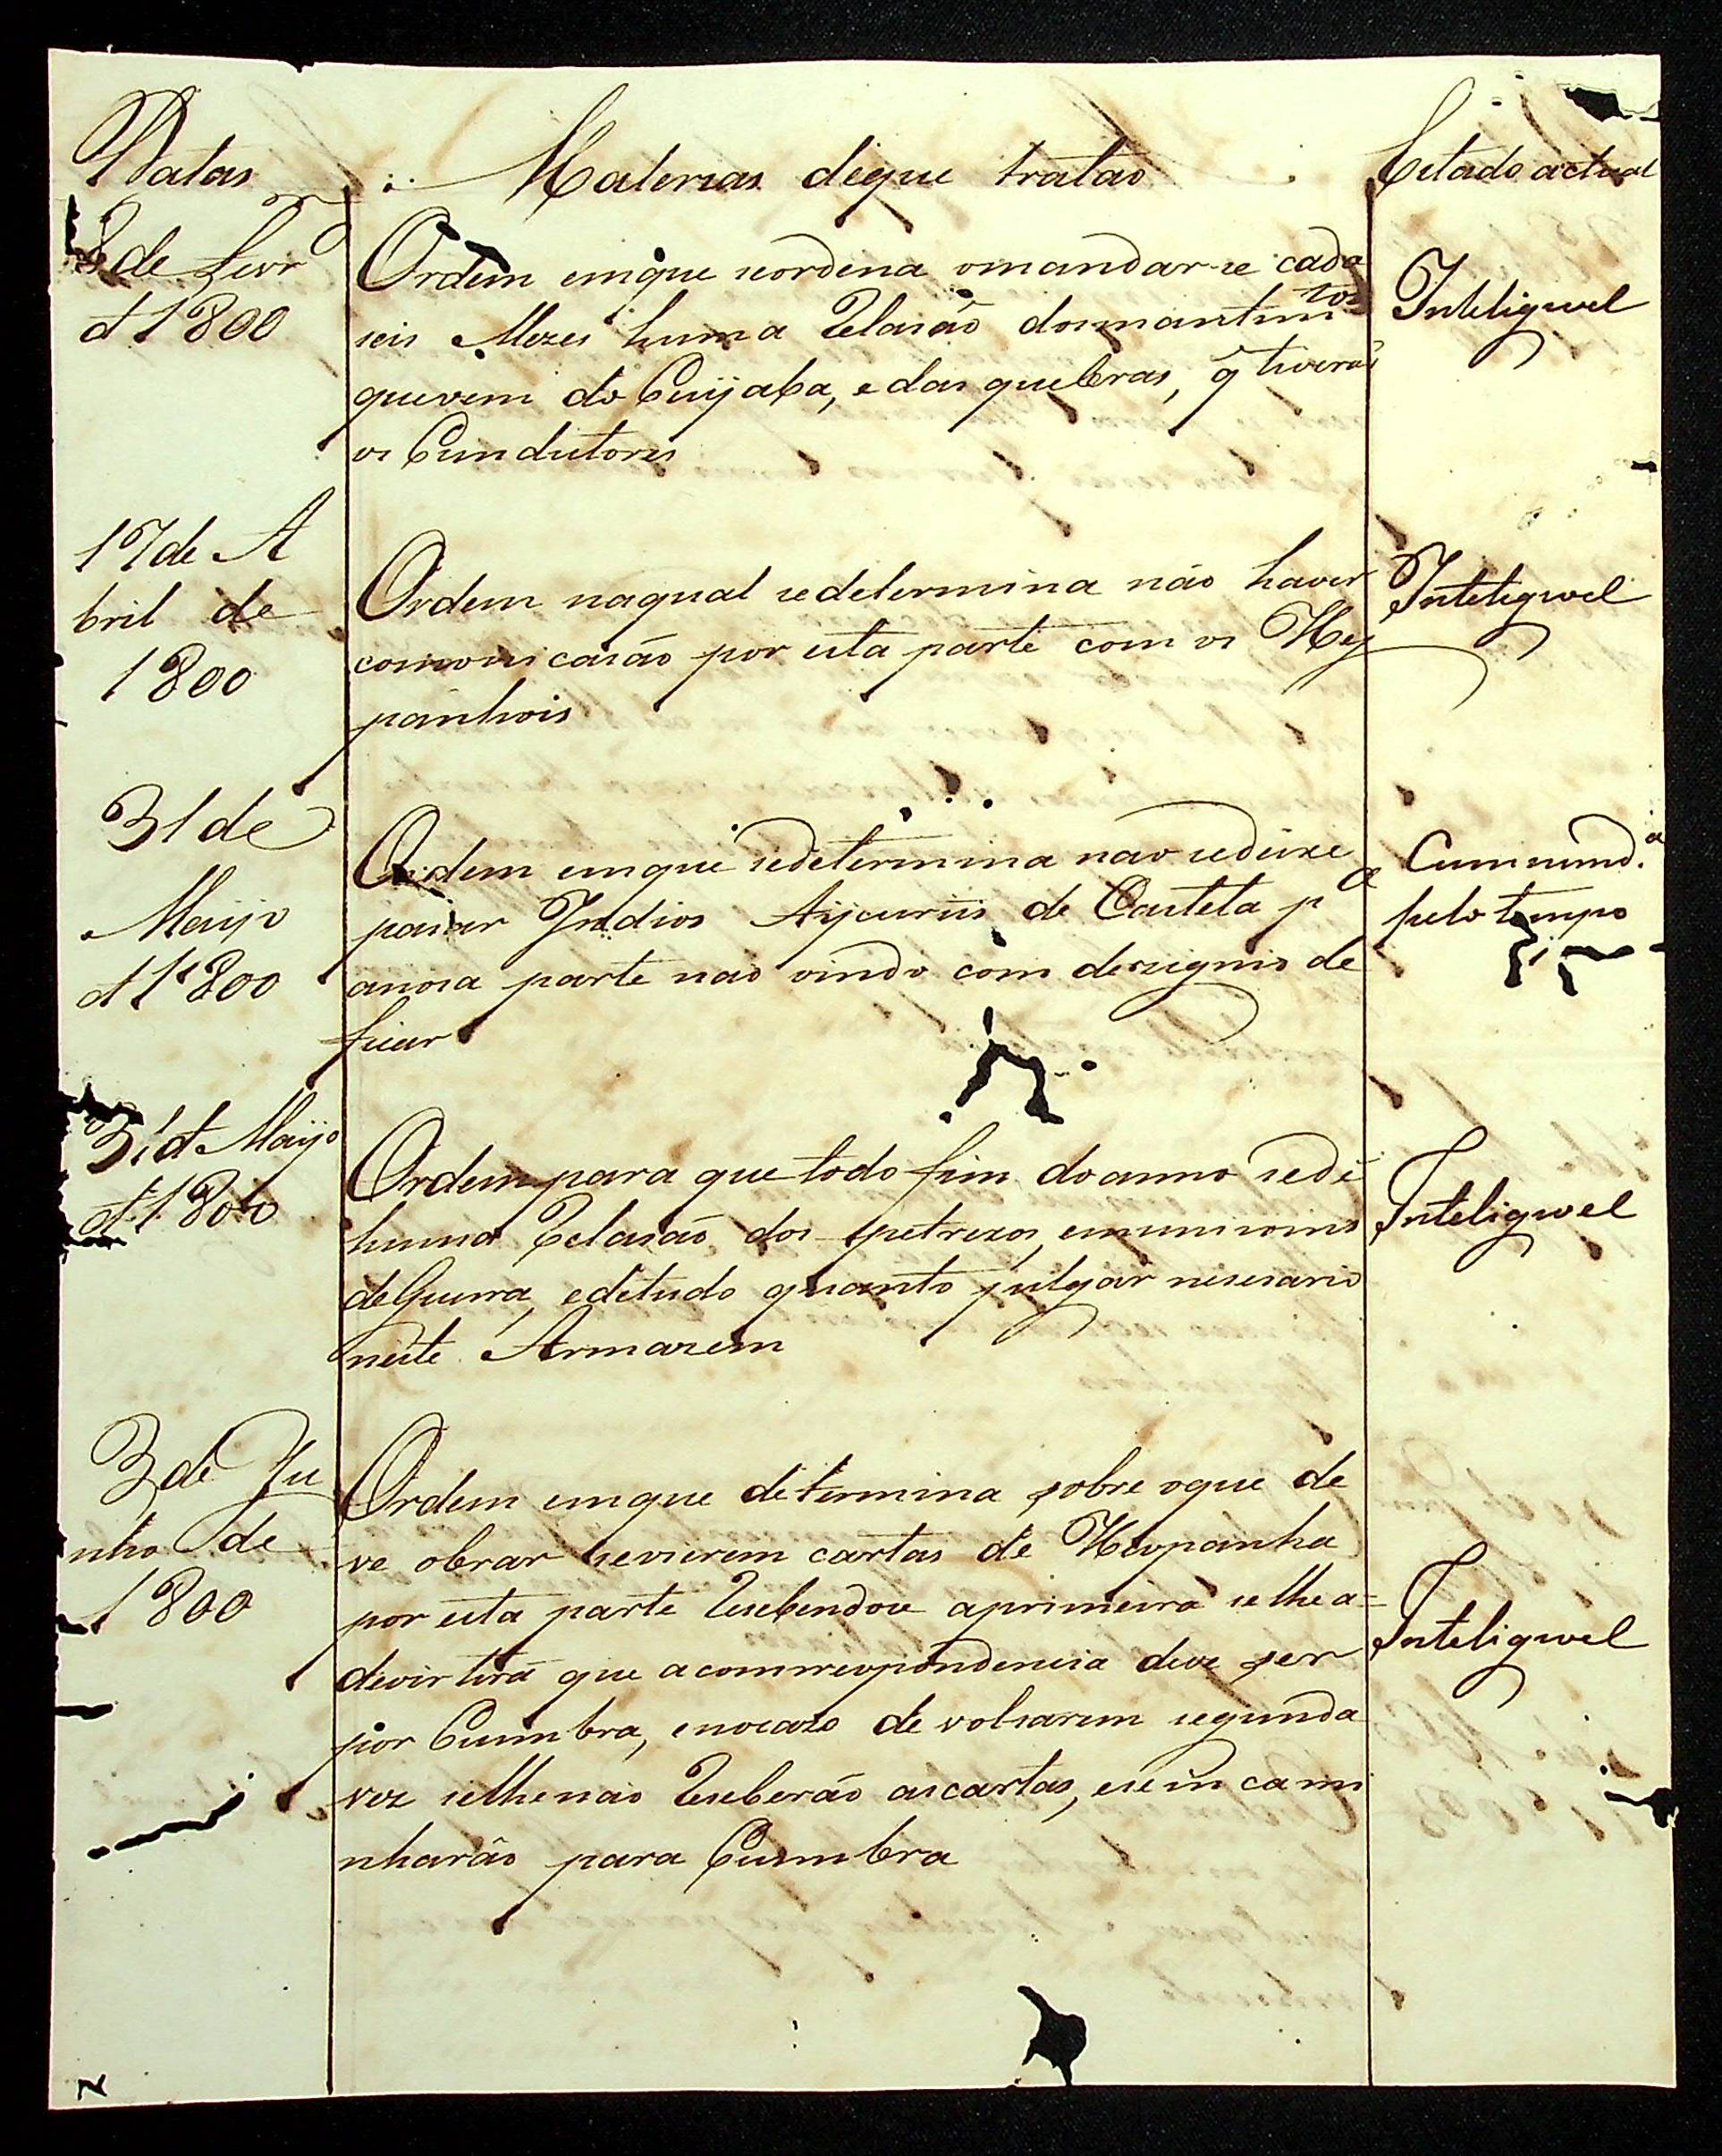 Datas
Materias deque tratao
Estado actual
8 de Fevr.o
d 1800
Ordem emque seordena omandar-se cada
seis Mezes huma Relasão dosmantimtos
quevem do Cuijaba, e das quebras, q̃ tiverão
os Cundutores
Inteligivel
17 de A
bril de
1800
Ordem naqual sedetermina não haver
comonicasão por esta parte com os Hes
panhois
Inteligivel
31 de
Maijo
d 1800
Ordem emque sedetermina nao sedeixe
pasar Indios Aijcurús de Castela pa
anosa parte nao vindo com deszignio de
ficar
Cumnumd.a
pelo tempo
31 d Maijo
d 1800
Ordem para que todo fim do anno sedê
huma Relasão dos petrexos, emunisoins
deGuerra, edetudo quanto julgar nesesario
neste Armazem
Inteligivel
3 de Ju
nho de
1800
Ordem emque determina sobre oque de
ve obrar sevierem cartas de Hespanha
por esta parte Resebendose aprimeira selhe a=
devirtirá que acomrrespondencia deve ser
por Cuimbra, enocazo de voltarem segunda
vez selhenão Reseberão ascartas, eseincami
nharão para Cuimbra
Inteligivel